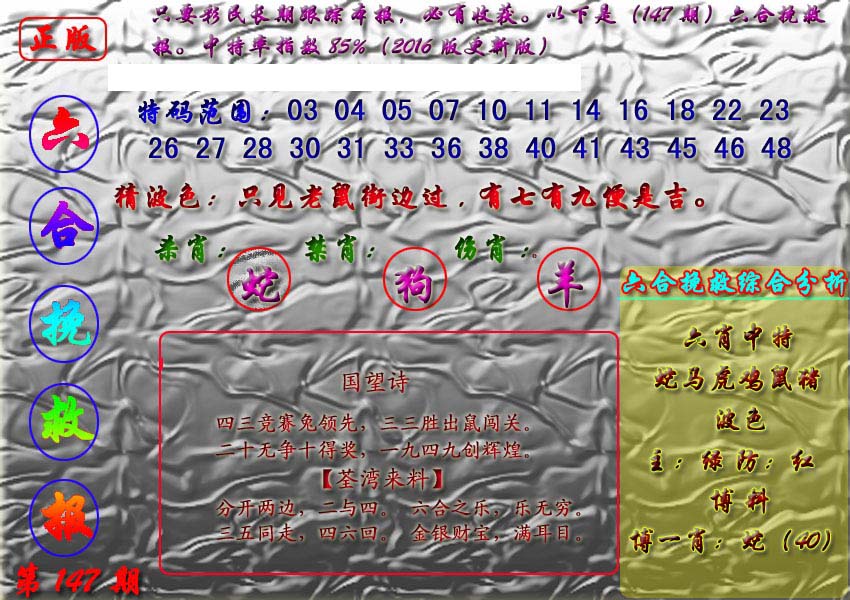 正版
只要彩民长期跟踪本报，必有收获。以下是（147期）六合挽救
报。中特率指数85%（2016版更新版）
六合挽救报
第147期
特码范围：03 04 05 07 10 11 14 16 18 22 23
26 27 28 30 31 33 36 38 40 41 43 45 46 48
猜波色：只见老鼠街边过，有七有九便是吉。
杀肖：蛇 禁肖：狗 伤肖：羊
国望诗
四三竞赛兔领先，三三胜出鼠闯关。
二十无争十得奖，一九四九创辉煌。
【荃湾来料】
分开两边，二与四。 六合之乐，乐无穷。
三五同走，四六回。 金银财宝，满耳目。
六合挽救综合分析
六肖中特
蛇马虎鸡鼠猪
波色
主：绿防：红
博料
博一肖：蛇（40）